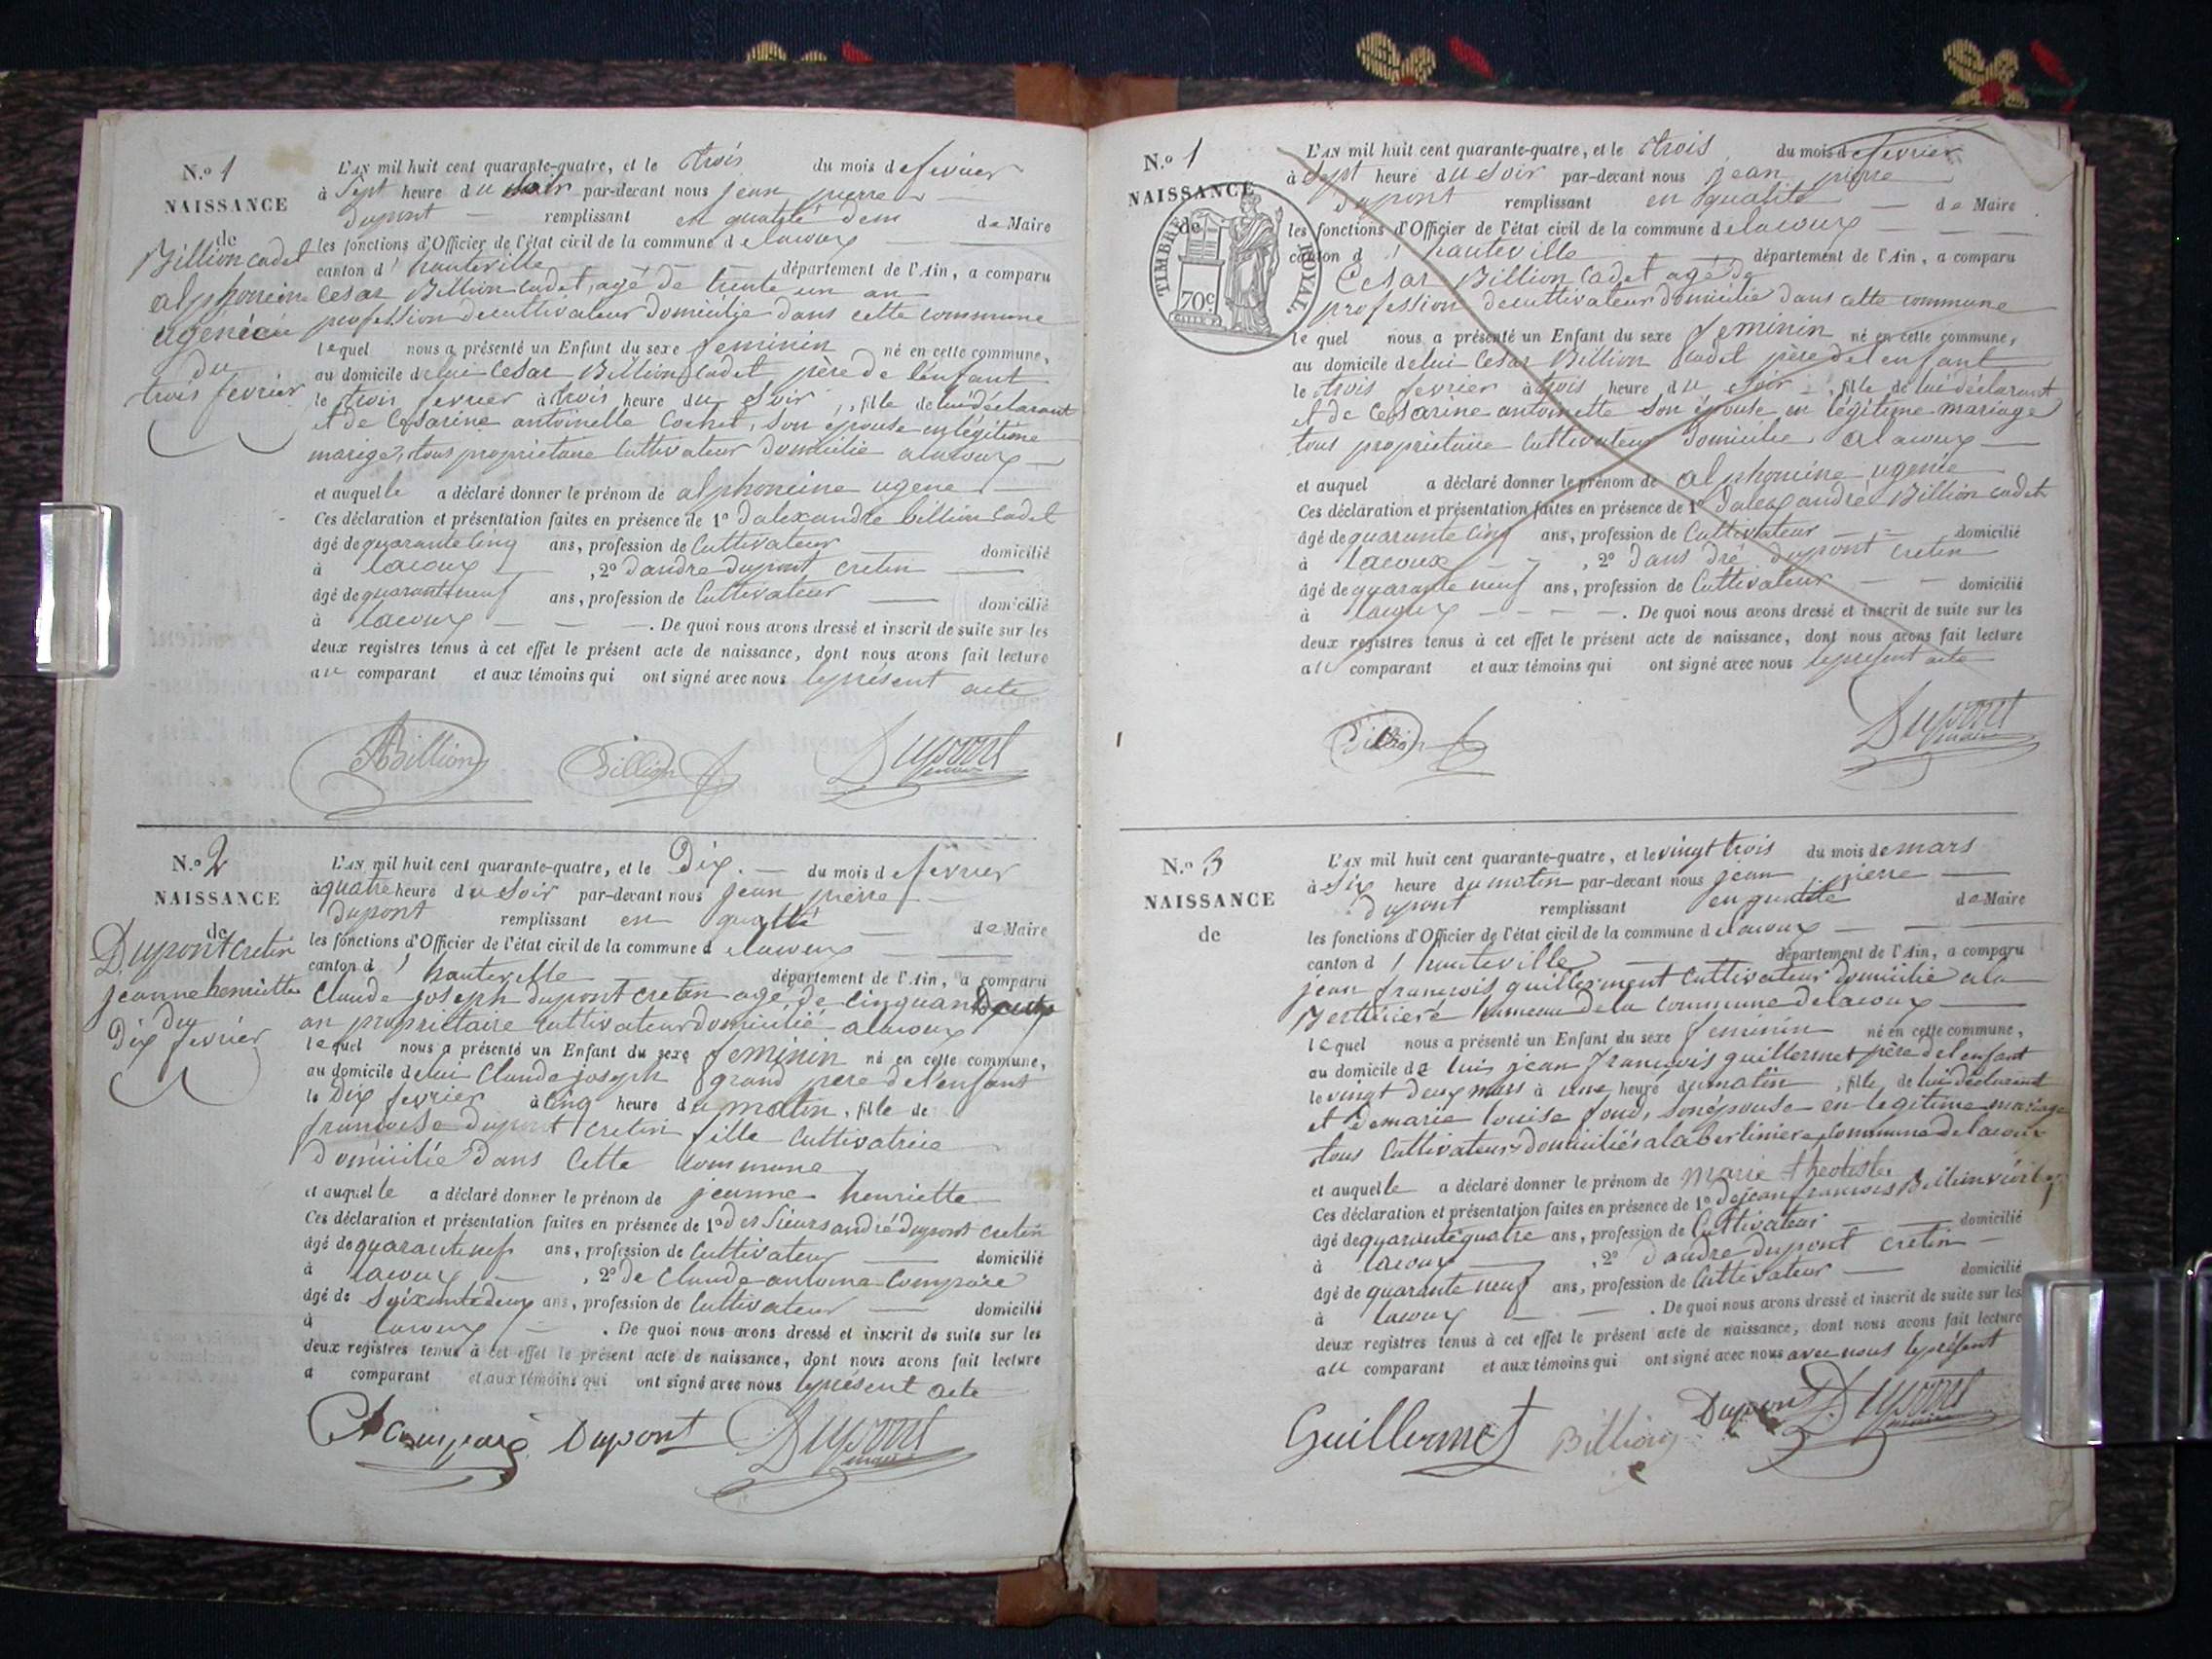 N.º 1
NAISSANCE
de
Billion cadet
alphonsine
ugénéie
du
trois fevrier
L'AN mil huit cent quarante-quatre, et le trois du mois de fevrier
à Sept heure du soir par-devant nous jean pierre
dupont remplissant en qualité de Maire
les fonctions d'Officier de l'état civil de la commune d elacoux
canton d' hauteville département de l'Ain, a comparu
Cesar Billion cadet, agé de trente un an
profession decultivateur domicilie dans cette commune
lequel nous a présenté un Enfant du sexe feminin né en cette commune,
au domicile de lui Cesar Billion Cadet père de l'enfant
le trois fevrier à trois heure du Soir, fille de lui déclarant
et de Cesarine antoinette Cochet, son epouse en légitime
marige, tous proprietaire Cultivateur domicilie alacoux
et auquelle a déclaré donner le prénom de alphonsine ugene
Ces déclaration et présentation faites en présence de 1º dalexandre billion Cadet
âgé de quarante cinq ans, profession de Cultivateur domicilié
à lacoux , 2º dandre dupont cretin
âgé de quarantneuf ans, profession de Cultivateur domicilié
à lacoux . De quoi nous avons dressé et inscrit de suite sur les
deux registres tenus à cet effet le présent acte de naissance, dont nous avons fait lecture
au comparant et aux témoins qui ont signé avec nous leprésent acte
ABillion Billion Dupont
maire
N.º 2
NAISSANCE
de
Dupont cretin
jeanne henriette
du
Dix fevrier
L'AN mil huit cent quarante-quatre, et le Dix du mois de fevrier
à quatre heure du Soir par-devant nous jean pierre
dupont remplissant en qualité de Maire
les fonctions d'Officier de l'état civil de la commune d elacoux
canton d' hauteville département de l'Ain, a comparu
Claude joseph dupont cretin age de cinquante
an proprietaire cultivateur domicilié alacoux
lequel nous a présenté un Enfant du sexe feminin né en cette commune,
au domicile de lui Claude joseph grand pere de l'enfant
le Dix fevrier à cinq heure du matin, fille de
francoise dupont cretin fille cultivatrice
domicilié dans Cette commune
et auquelle a déclaré donner le prénom de jeanne henriette
Ces déclaration et présentation faites en présence de 1º des Sieurs andré dupont cretin
âgé de quarantenef ans, profession de Cultivateur domicilié
à lacoux , 2º de Claude antoine Compare
âgé de Soixantedeux ans, profession de Cultivateur domicilié
à lacoux . De quoi nous avons dressé et inscrit de suite sur les
deux registres tenus à cet effet le présent acte de naissance, dont nous avons fait lecture
a comparant et aux témoins qui ont signé avec nous leprésent acte
Dupont Dupont
maire
N.º 1
NAISSANCE
de
TIMBRE ROYAL
70c.
L'AN mil huit cent quarante-quatre, et le trois du mois de fevrier
à Sept heure du Soir par-devant nous jean pierre
dupont remplissant en qualité de Maire
les fonctions d'Officier de l'état civil de la commune d elacoux
canton d' hauteville département de l'Ain, a comparu
Cesar Billion Cadet agé de
profession decultivateur domicilié dans cette commune
le quel nous a présenté un Enfant du sexe feminin né en cette commune,
au domicile de lui Cesar Billion Cadet père del enfant
le trois fevrier à trois heure du Soir, fille de lui déclarant
et de Cesarine antoinette son épouse en légitime mariage
tous proprietaire Cultivateur domicilie alacoux
et auquel a déclaré donner le prénom de alphonsine ugenie
Ces déclaration et présentation faites en présence de 1º dalexandre Billion cadet
âgé de quarante cinq ans, profession de Cultivateur domicilié
à lacoux , 2º dans dré dupont cretin
âgé de quarante neuf ans, profession de Cultivateur domicilié
à lacoux . De quoi nous avons dressé et inscrit de suite sur les
deux registres tenus à cet effet le présent acte de naissance, dont nous avons fait lecture
au comparant et aux témoins qui ont signé avec nous lepresent acte
Billion Dupont
maire
N.º 3
NAISSANCE
de
L'AN mil huit cent quarante-quatre, et le vingt trois du mois de mars
à Six heure du matin par-devant nous jean pierre
dupont remplissant en qualité de Maire
les fonctions d'Officier de l'état civil de la commune d elacoux
canton d' hauteville département de l'Ain, a comparu
jean francois guillermet Cultivateur domicilié ala
Bertiniere hameau dela commune delacoux
lequel nous a présenté un Enfant du sexe feminin né en cette commune,
au domicile de luis jean francois guillermet père del enfant
le vingt deux mars à une heure du matin, fille de lui déclarant
et demarie louise fond, sonépouse en legitime mariage
tous Cultivateurs domiciliés alabertiniere commune delacoux
et auquelle a déclaré donner le prénom de marie theotiste
Ces déclaration et présentation faites en présence de 1º dejean francois Billion
âgé de quarante quatre ans, profession de Cultivateur domicilié
à lacoux , 2º dandre dupont cretin
âgé de quarante neuf ans, profession de Cultivateur domicilié
à lacoux . De quoi nous avons dressé et inscrit de suite sur les
deux registres tenus à cet effet le présent acte de naissance, dont nous avons fait lecture
au comparant et aux témoins qui ont signé avec nous avec nous leprésent
Guillermet Billion Dupont Dupont
maire